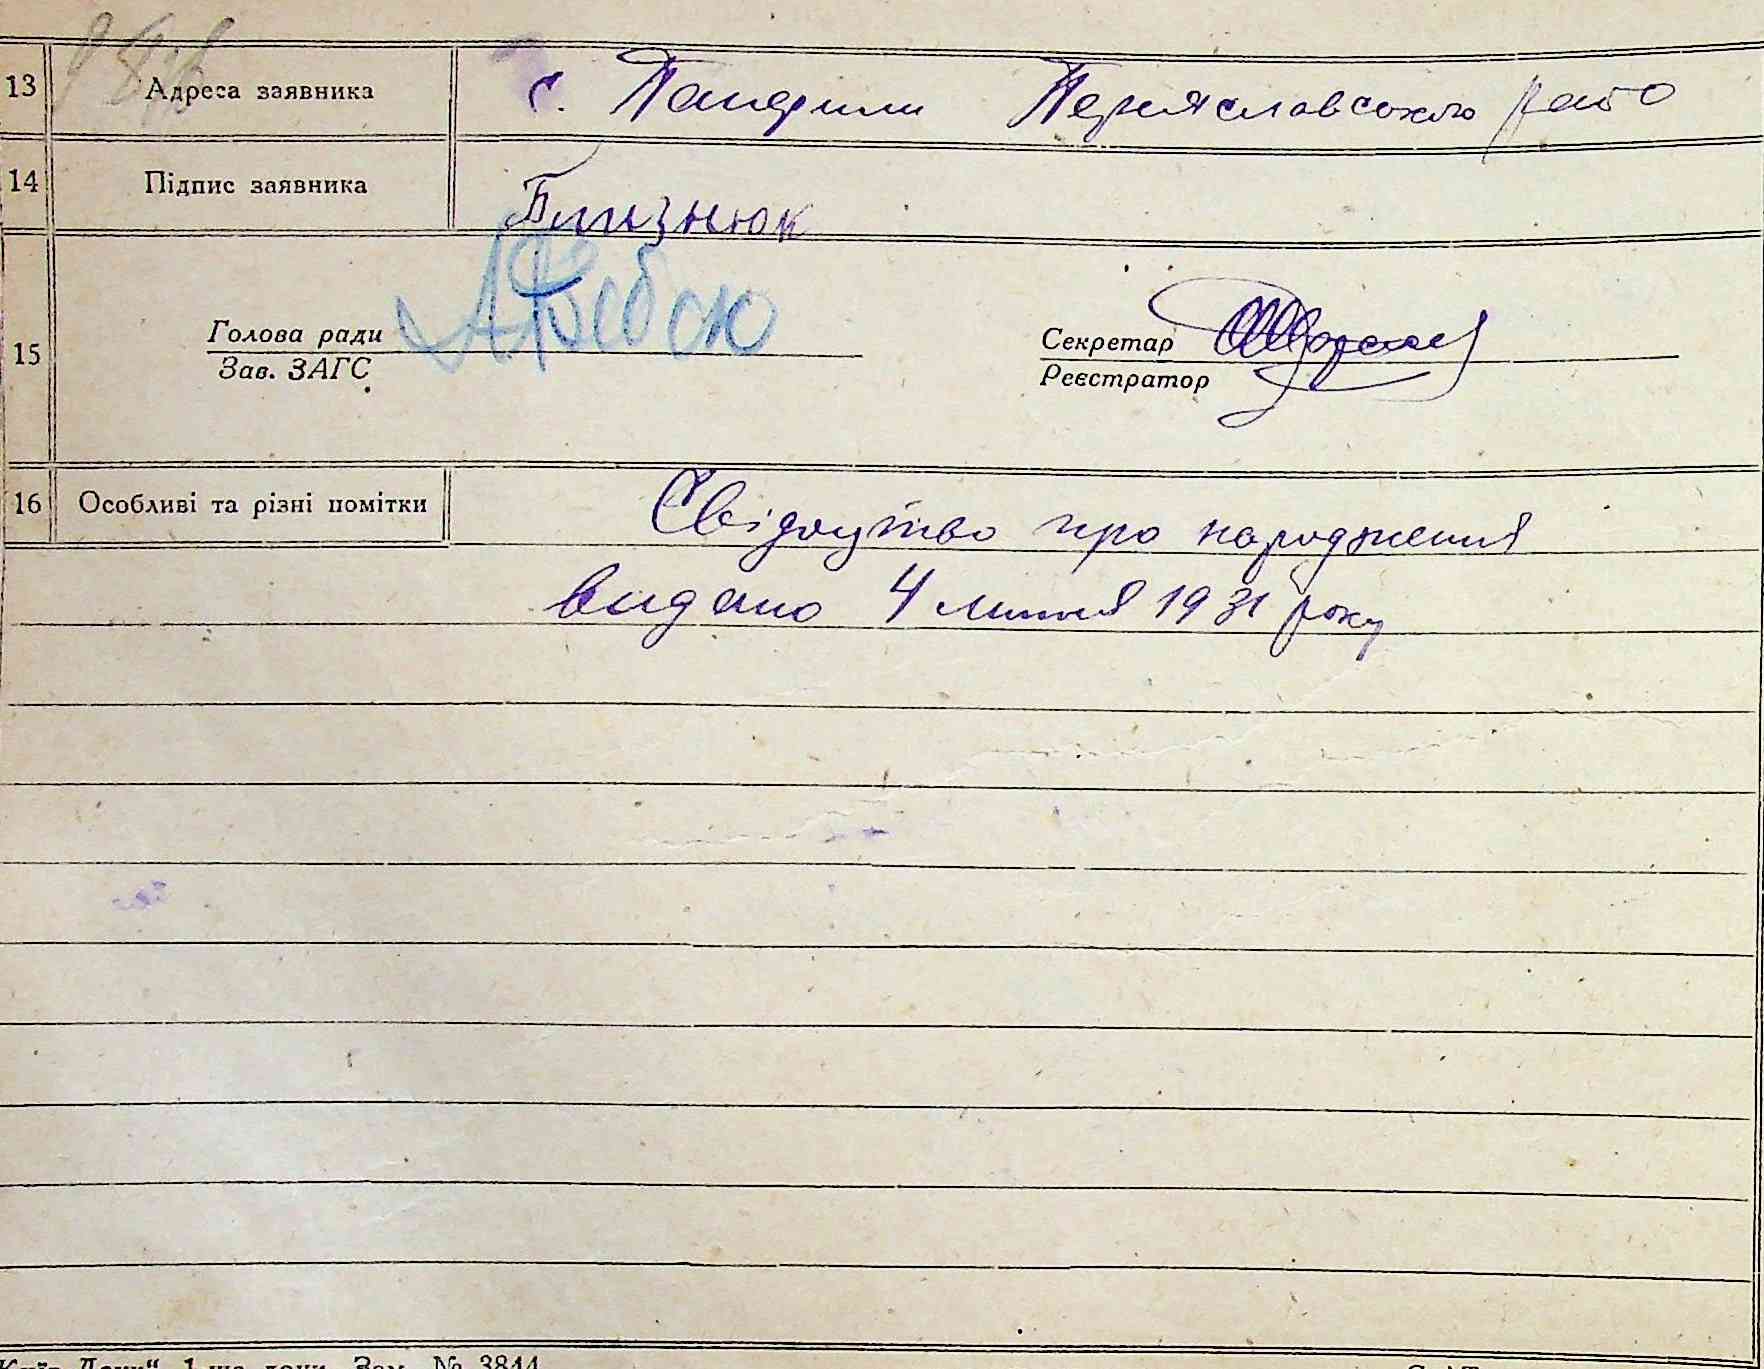 13 Адреса заявника с. Панфили Переяславського району
14 Підпис заявника Близнюк
15 Голова ради
Зав. ЗАГС.
Секретар
Реєстратор
16 Особливі та різні помітки Свідоцтво про народження
видано 4 липня 1931 року
Зам. № 3844